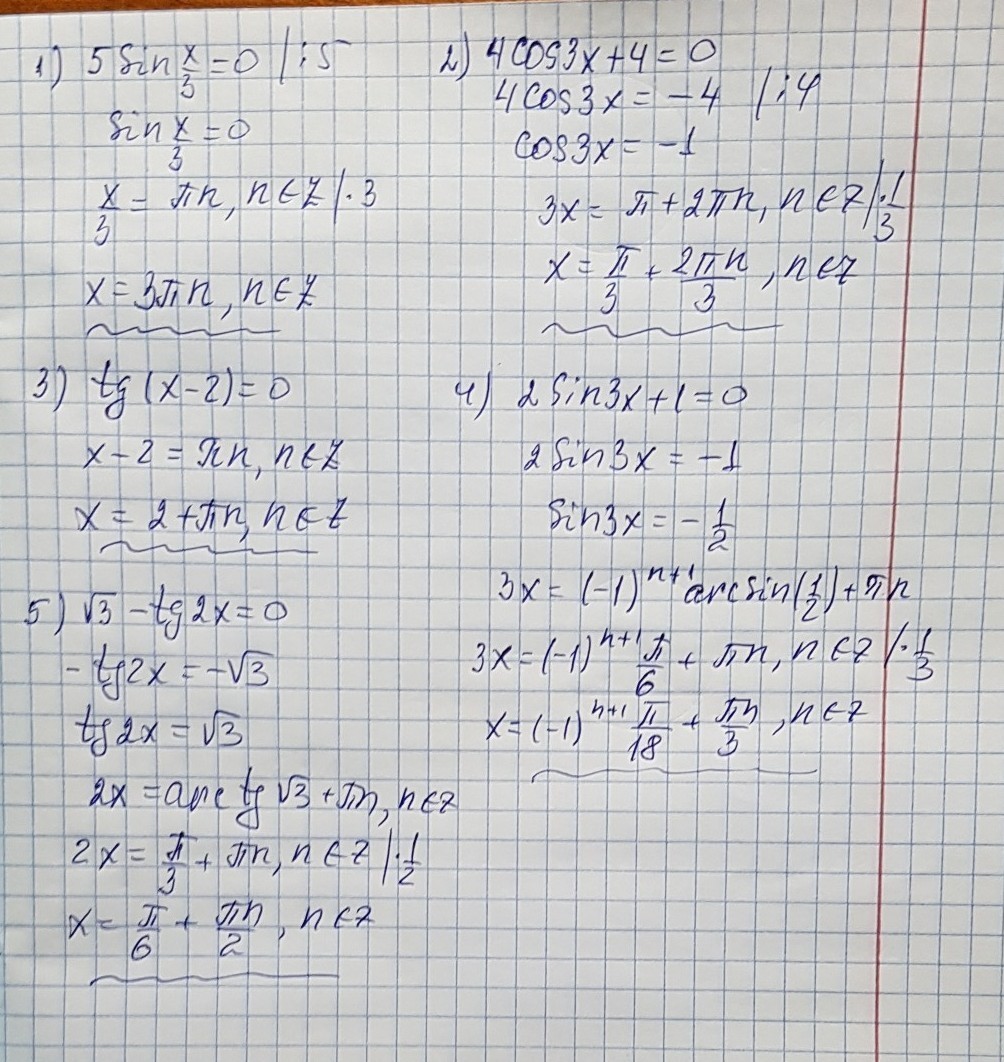 1) 5 sin x/3 = 0 | :5
sin x/3 = 0
x/3 = πn, n∈Z | · 3
x = 3πn, n∈Z
2) 4cos3x + 4 = 0
4cos3x = -4 | :4
cos3x = -1
3x = π + 2πn, n∈Z | · 1/3
x = π/3 + 2πn/3, n∈Z
3) tg (x-2) = 0
x - 2 = πn, n∈Z
x = 2 + πn, n∈Z
4) 2 sin3x + 1 = 0
2 sin3x = -1
sin3x = - 1/2
3x = (-1)^(n+1) arcsin(1/2) + πn
3x = (-1)^(n+1) π/6 + πn, n∈Z | · 1/3
x = (-1)^(n+1) π/18 + πn/3, n∈Z
5) √3 - tg2x = 0
- tg2x = -√3
tg2x = √3
2x = arctg √3 + πn, n∈Z
2x = π/3 + πn, n∈Z | · 1/2
x = π/6 + πn/2, n∈Z